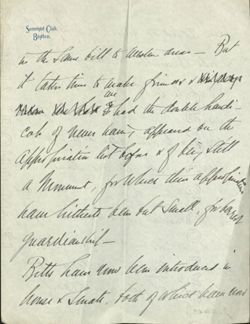 Somerset Club,
Boston.
in the same bill to
it takes time to make friends &
had the double handi-
cap of never having appeared on the
Appropriation list before & of being still
a Monument, for which their appropriations
have hitherto been but small, for bare
guardianship —
Bills have now been introduced in
House & Senate, both of which have now